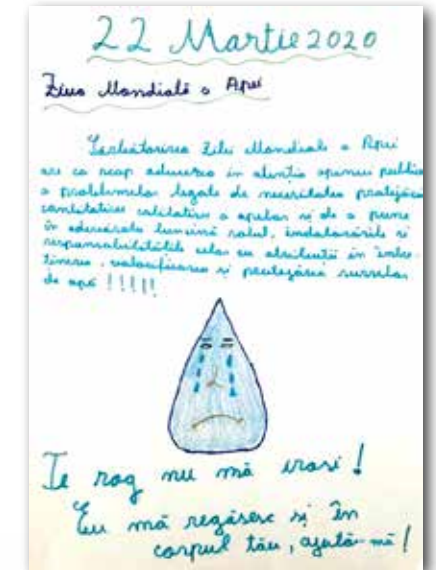 22 Martie 2020
Ziua Mondială a Apei
Sărbătorirea Zilei Mondiale a Apei
are ca scop aducerea în atenția opiniei publice
a problemelor legate de necesitatea protejării
cantitative calitative a apelor și de a pune
în adevărata lumină rolul, îndatoririle și
responsabilitățile celor cu atribuții în între-
ținerea, valorificarea și protejarea surselor
de apă !!!!!
Te rog nu mă irosi!
Eu mă regăsesc și în
corpul tău, ajută-mă!